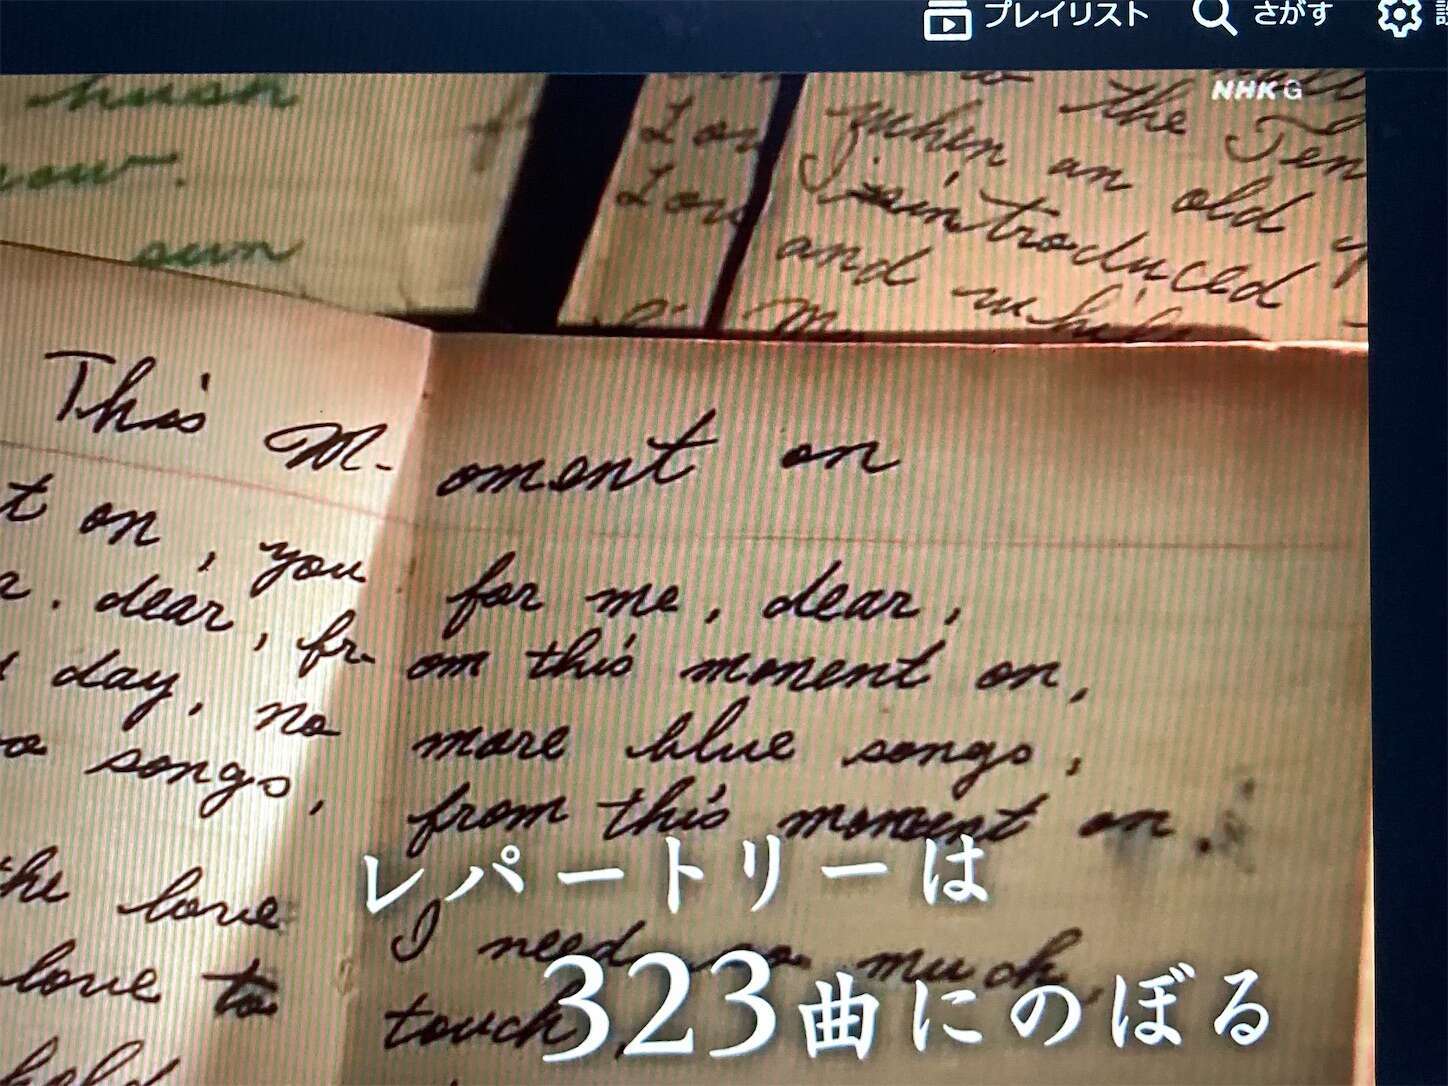 プレイリスト さがす
NHK G
hush
now.
sun
Lov
Lov
to the Ten
when an old
I introduced
and while
This M- oment on
t on, you for me, dear,
r. dear, fr- om this moment on,
day, no more blue songs,
songs, from this moment on.
the love I need so much,
love to touch,
hold
レパートリーは
323曲にのぼる